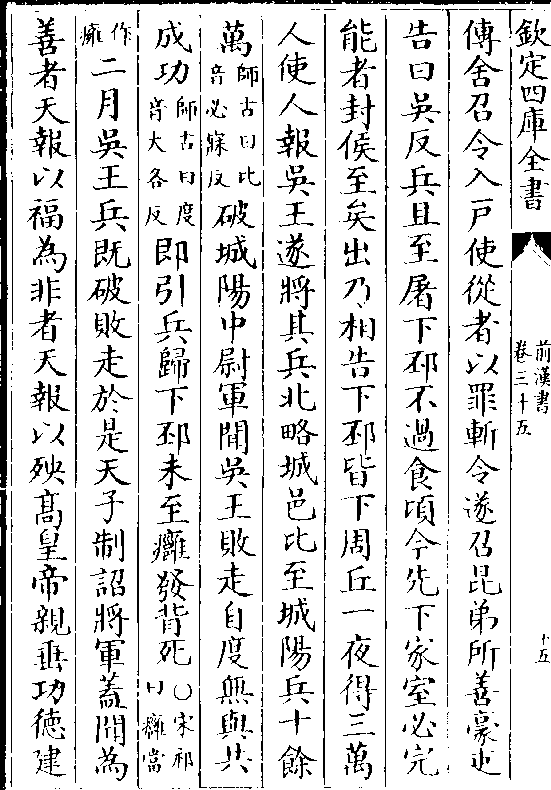 欽定四庫全書
前漢書
卷三十五
十五
傳舍召令入戶使從者以罪斬令遂召昆弟所善豪吏
告曰吳反兵且至屠下邳不過食頃今先下家室必完
能者封侯至矣出乃相告下邳皆下周丘一夜得三萬
人使人報吳王遂將其兵北略城邑比至城陽兵十餘
萬師古曰比音必寐反破城陽中尉軍聞吳王敗走自度無與共
成功師古曰度音大各反即引兵歸下邳未至癰發背死〇宋祁曰癰當
作癕二月吳王兵既破敗走於是天子制詔將軍蓋聞為
善者天報以福為非者天報以殃高皇帝親垂功德建